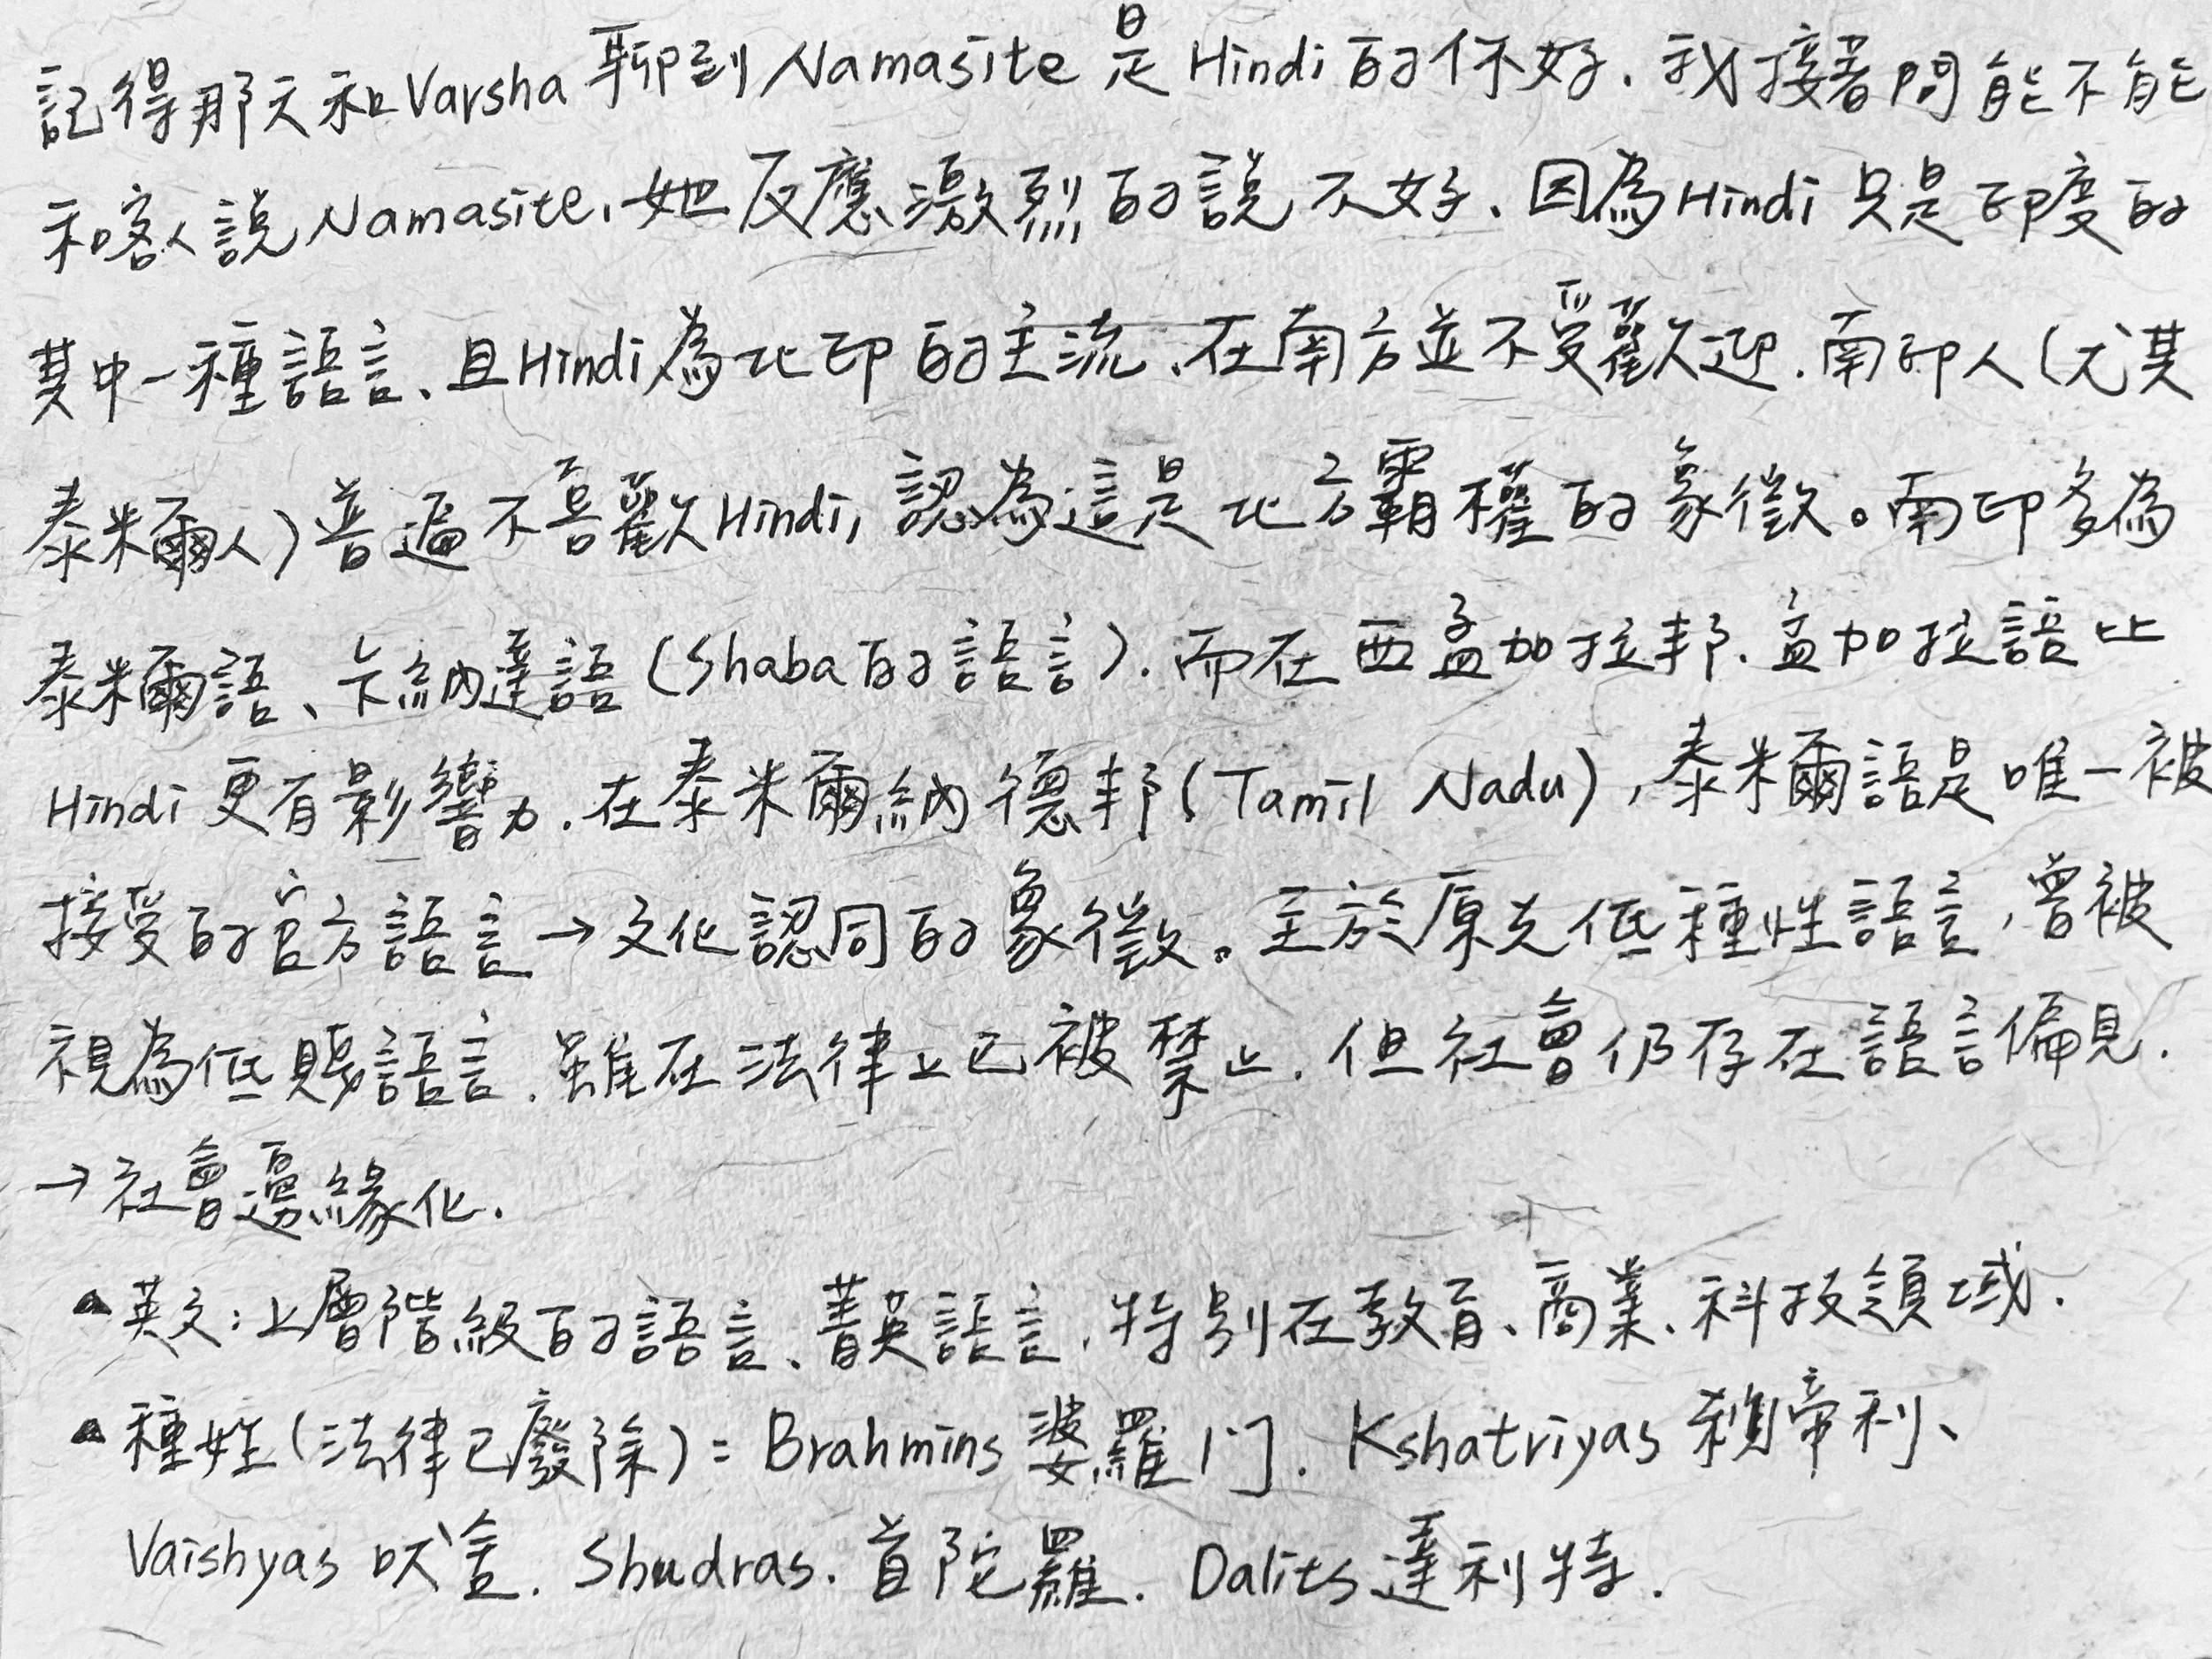 記得那天和Varsha聊到Namasite是Hindi的你好．我接著問能不能
和客人說Namasite、她反應激烈的說不好、因為Hindi只是印度的
其中一種語言、且Hindi為北印的主流、在南方並不受歡迎．南印人(尤其
泰米爾人)普遍不喜歡Hindi，認為這是北方霸權的象徵。南印多為
泰米爾語、卡納達語(Shaba的語言)．而在西孟加拉邦、孟加拉語比
Hindi更有影響力．在泰米爾納德邦(Tamil Nadu)，泰米爾語是唯一被
接受的官方語言→文化認同的象徵。至於原先低種性語言，曾被
視為低賤語言．雖在法律上已被禁止．但社會仍存在語言偏見．
→社會邊緣化．
▲英文：上層階級的語言、菁英語言，特別在教育、商業、科技領域．
▲種姓(法律已廢除)：Brahmins婆羅門．Kshatriyas 剎帝利、
Vaishyas 吠舍．Shudras．首陀羅．Dalits達利特．